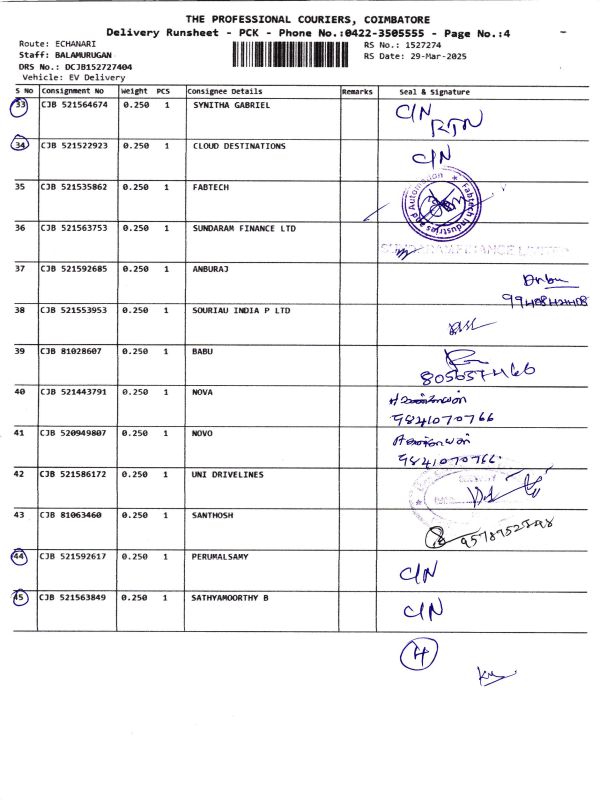 THE PROFESSIONAL COURIERS, COIMBATORE
Delivery Runsheet - PCK - Phone No.:0422-3505555 - Page No.:4
Route: ECHANARI
RS No.: 1527274
Staff: BALAMURUGAN
RS Date: 29-Mar-2025
DRS No.: DCJB152727404
Vehicle: EV Delivery
S No Consignment No Weight PCS Consignee Details Remarks Seal & Signature
33 CJB 521564674 0.250 1 SYNITHA GABRIEL C/N RTN
34 CJB 521522923 0.250 1 CLOUD DESTINATIONS C/N
35 CJB 521535862 0.250 1 FABTECH Fabtech Industries and Automation
36 CJB 521563753 0.250 1 SUNDARAM FINANCE LTD SUNDARAM FINANCE LIMITED
37 CJB 521592685 0.250 1 ANBURAJ
38 CJB 521553953 0.250 1 SOURIAU INDIA P LTD
39 CJB 81028607 0.250 1 BABU 8056574466
40 CJB 521443791 0.250 1 NOVA 9841070766
41 CJB 520949807 0.250 1 NOVO 9841070766
42 CJB 521586172 0.250 1 UNI DRIVELINES
43 CJB 81063460 0.250 1 SANTHOSH
44 CJB 521592617 0.250 1 PERUMALSAMY C/N
45 CJB 521563849 0.250 1 SATHYAMOORTHY B C/N
4